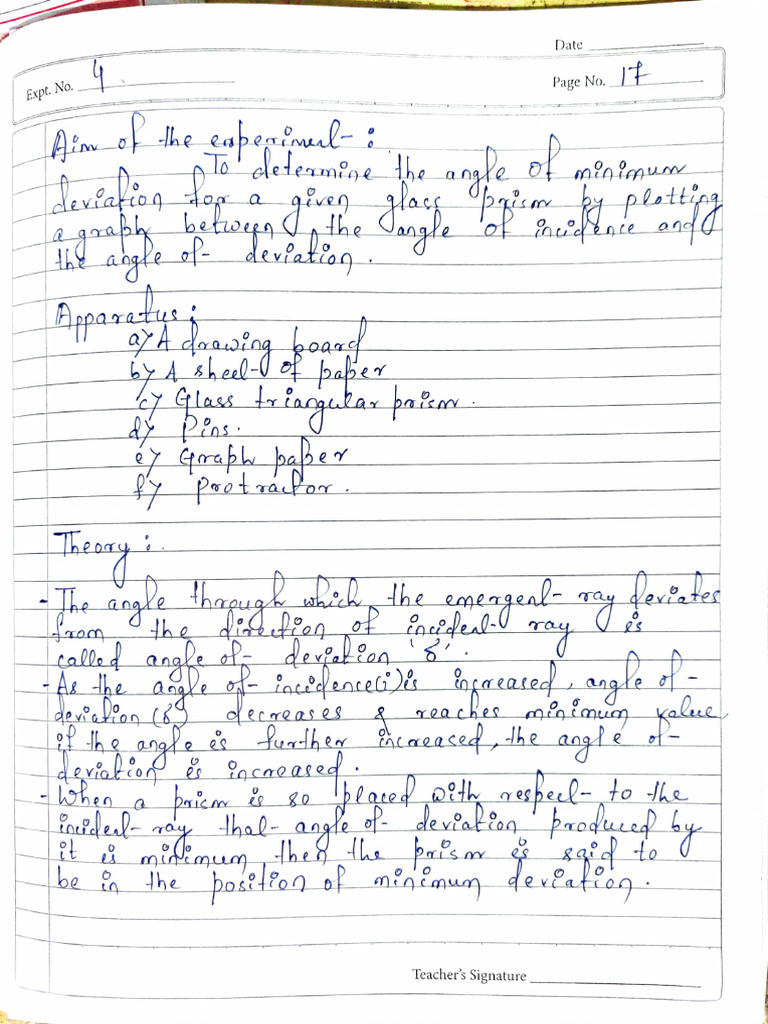 Date
Expt. No. 4.
Page No. 17
Aim of the experiment :
To determine the angle of minimum
deviation for a given glass prism by plotting
a graph between the angle of incidence and
the angle of deviation.
Apparatus :
a) A drawing board
b) A sheet of paper
c) Glass triangular prism.
d) Pins.
e) Graph paper
f) protractor.
Theory :
- The angle through which the emergent ray deviates
from the direction of incident ray is
called angle of deviation 'δ'.
- As the angle of incidence(i) is increased, angle of
deviation (δ) decreases & reaches minimum value,
if the angle is further increased, the angle of
deviation is increased.
- When a prism is so placed with respect to the
incident ray that angle of deviation produced by
it is minimum then the prism is said to
be in the position of minimum deviation.
Teacher's Signature